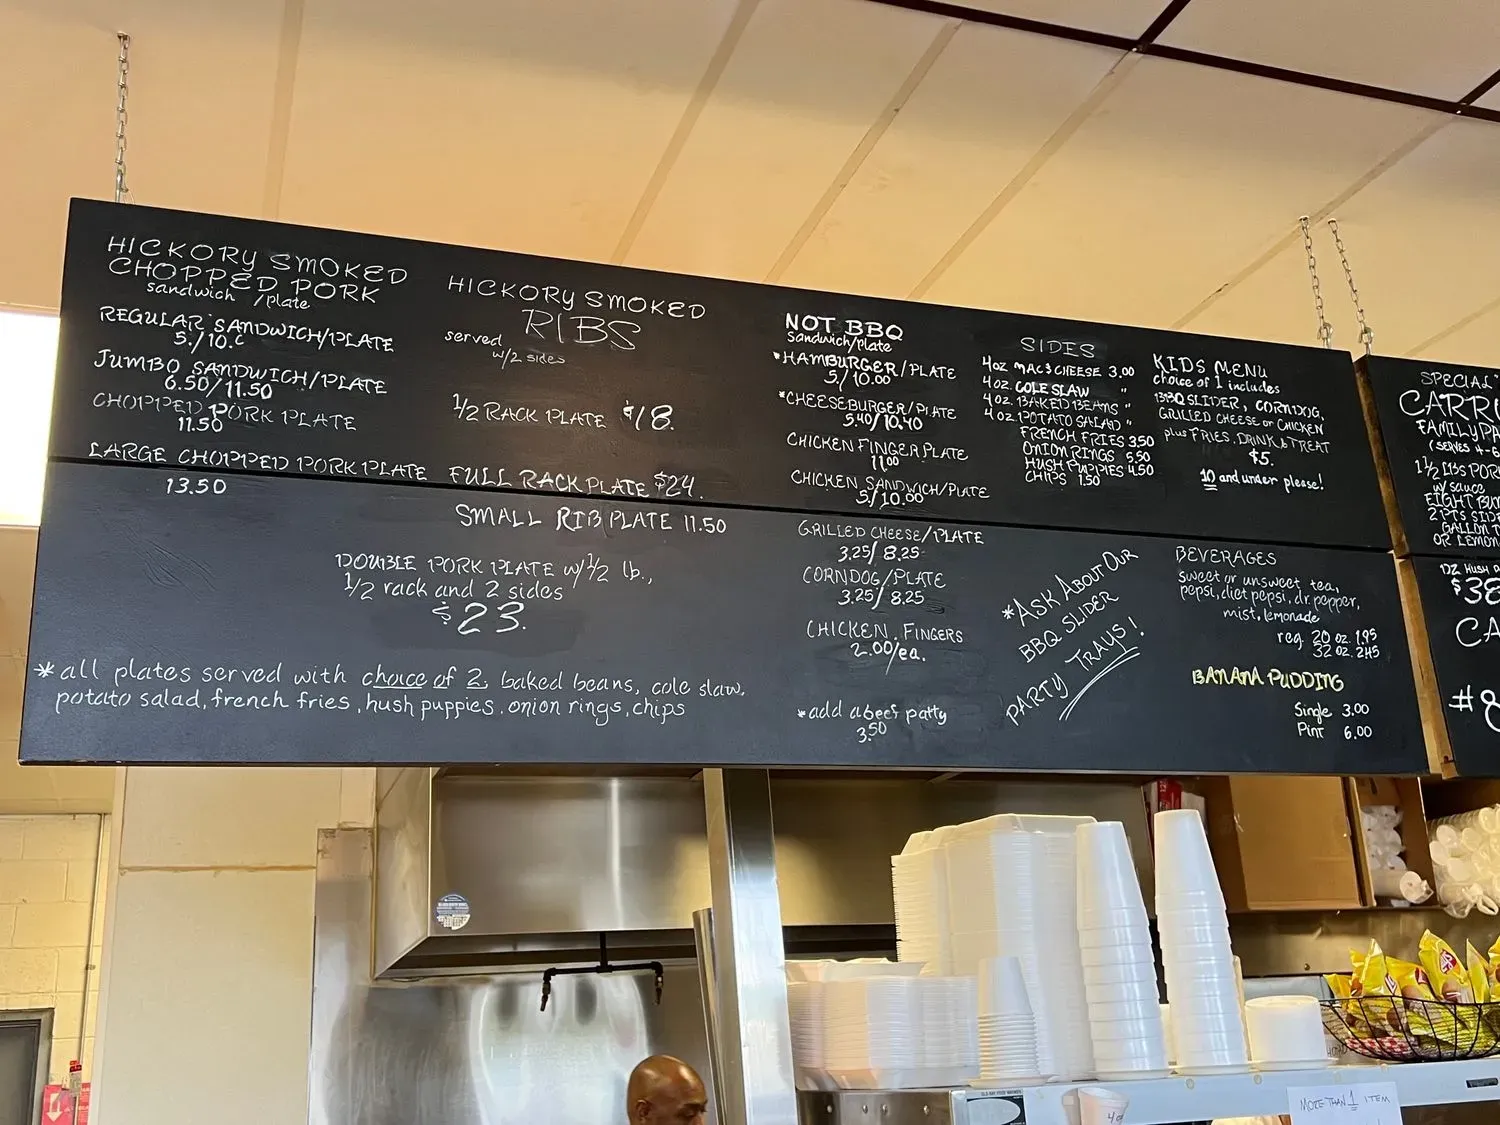 HICKORY SMOKED
CHOPPED PORK
sandwich /plate
REGULAR SANDWICH/PLATE
5./10.
JUMBO SANDWICH/PLATE
6.50/11.50
CHOPPED PORK PLATE
11.50
LARGE CHOPPED PORK PLATE
13.50
HICKORY SMOKED
RIBS
served
w/2 sides
1/2 RACK PLATE $18.
FULL RACK PLATE $24.
SMALL RIB PLATE 11.50
DOUBLE PORK PLATE w/1/2 lb.,
1/2 rack and 2 sides
$23.
*all plates served with choice of 2, baked beans, cole slaw,
potato salad, french fries, hush puppies, onion rings, chips
NOT BBQ
Sandwich/plate
*HAMBURGER/PLATE
5./10.00
*CHEESEBURGER/PLATE
5.40/10.40
CHICKEN FINGER PLATE
11.00
CHICKEN SANDWICH/PLATE
5/10.00
GRILLED CHEESE/PLATE
3.25/8.25
CORNDOG/PLATE
3.25/8.25
CHICKEN FINGERS
2.00/ea.
*add a beef patty
3.50
SIDES
4oz MAC & CHEESE 3.00
4oz. COLE SLAW "
4oz. BAKED BEANS "
4oz. POTATO SALAD "
FRENCH FRIES 3.50
ONION RINGS 5.50
HUSH PUPPIES 4.50
CHIPS 1.50
*ASK ABOUT OUR
BBQ SLIDER
PARTY TRAYS!
KIDS MENU
choice of 1 includes
BBQ SLIDER, CORNDOG,
GRILLED CHEESE or CHICKEN
plus FRIES, DRINK & TREAT
$5.
10 and under please!
BEVERAGES
sweet or unsweet tea,
pepsi, diet pepsi, dr. pepper,
mist, lemonade
reg. 20 oz. 1.95
32 oz. 2.45
BANANA PUDDING
Single 3.00
Pint 6.00
SPECIAL
CARR
FAMILY PA
(SERVES 4-6
1 1/2 LBS POR
w/ sauce
EIGHT BU
2 PTS SID
GALLON T
OR LEMON
DZ HUSH P
$38
CA
#8
MORE THAN 1 ITEM